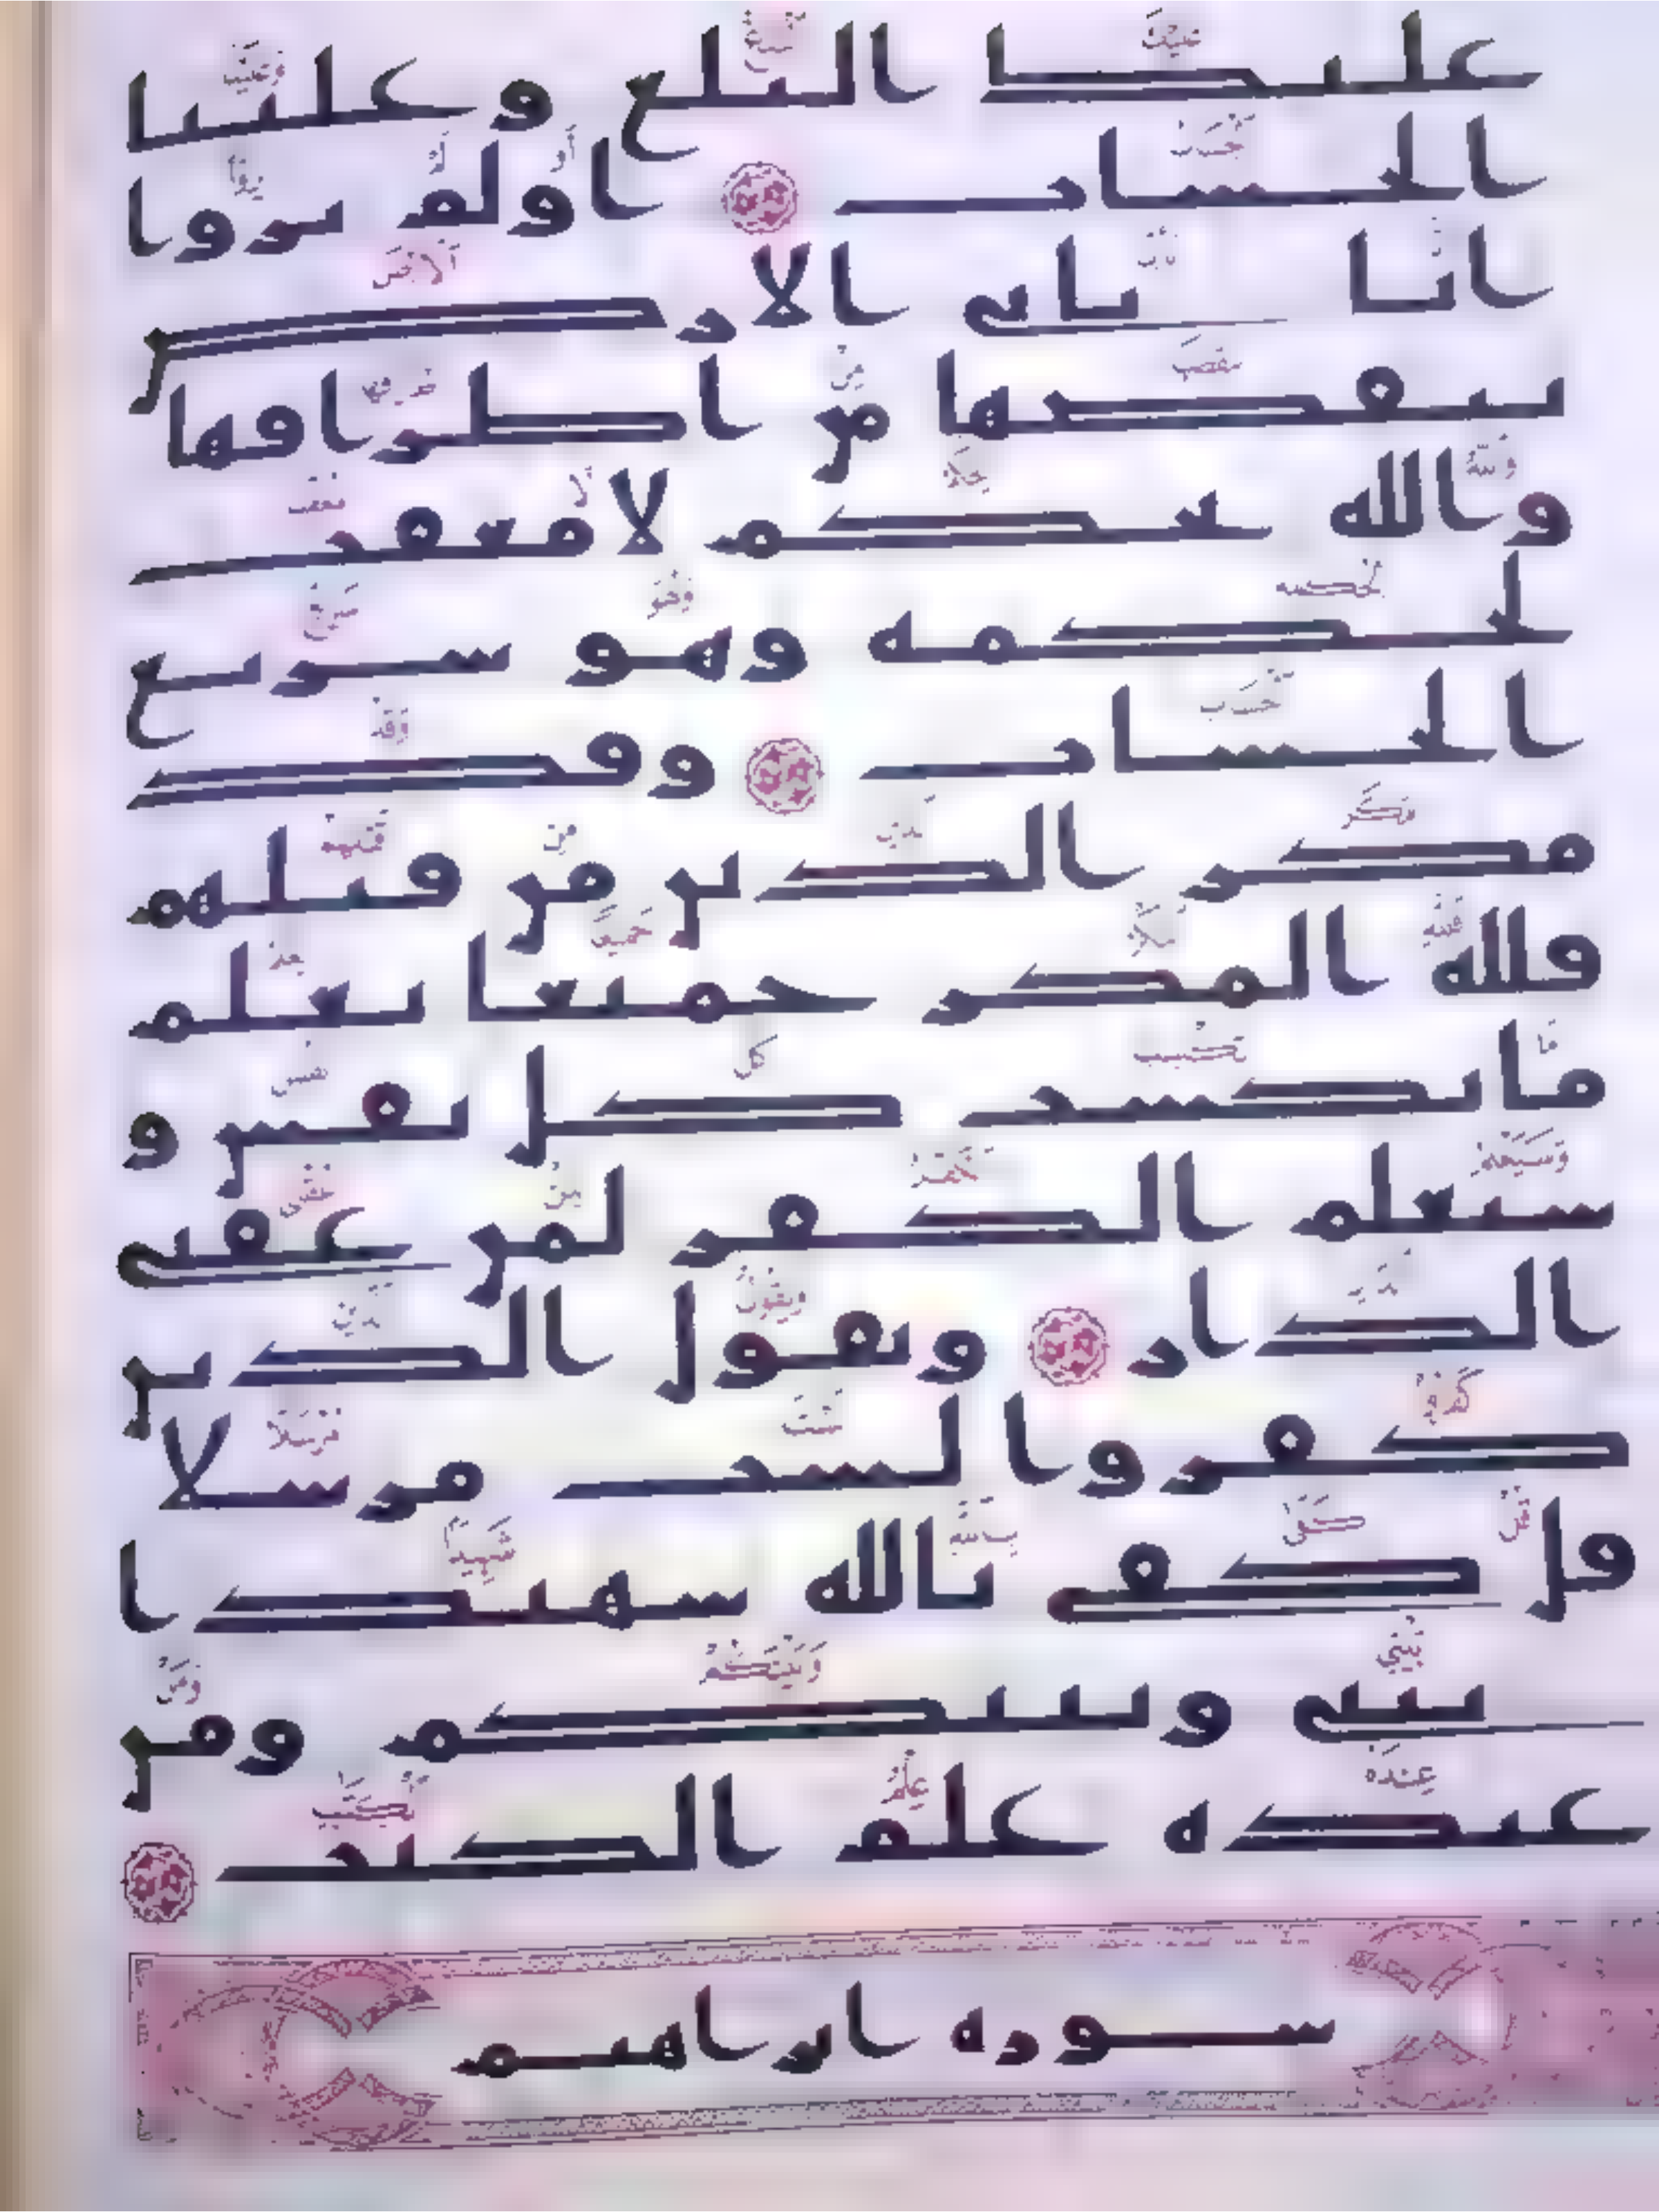 عليك البلغ وعلينا
الحساب اولم يروا
انا ناتى الارض
ننقصها من اطرافها
والله يحكم لا معقب
لحكمه وهو سريع
الحساب وقد
مكر الذين من قبلهم
فلله المكر جميعا يعلم
ما تكسب كل نفس و
سيعلم الكفر لمن عقبى
الدار ويقول الذين
كفروا لست مرسلا
قل كفى بالله شهيدا
بينى وبينكم ومن
عنده علم الكتب
سورة ابراهيم